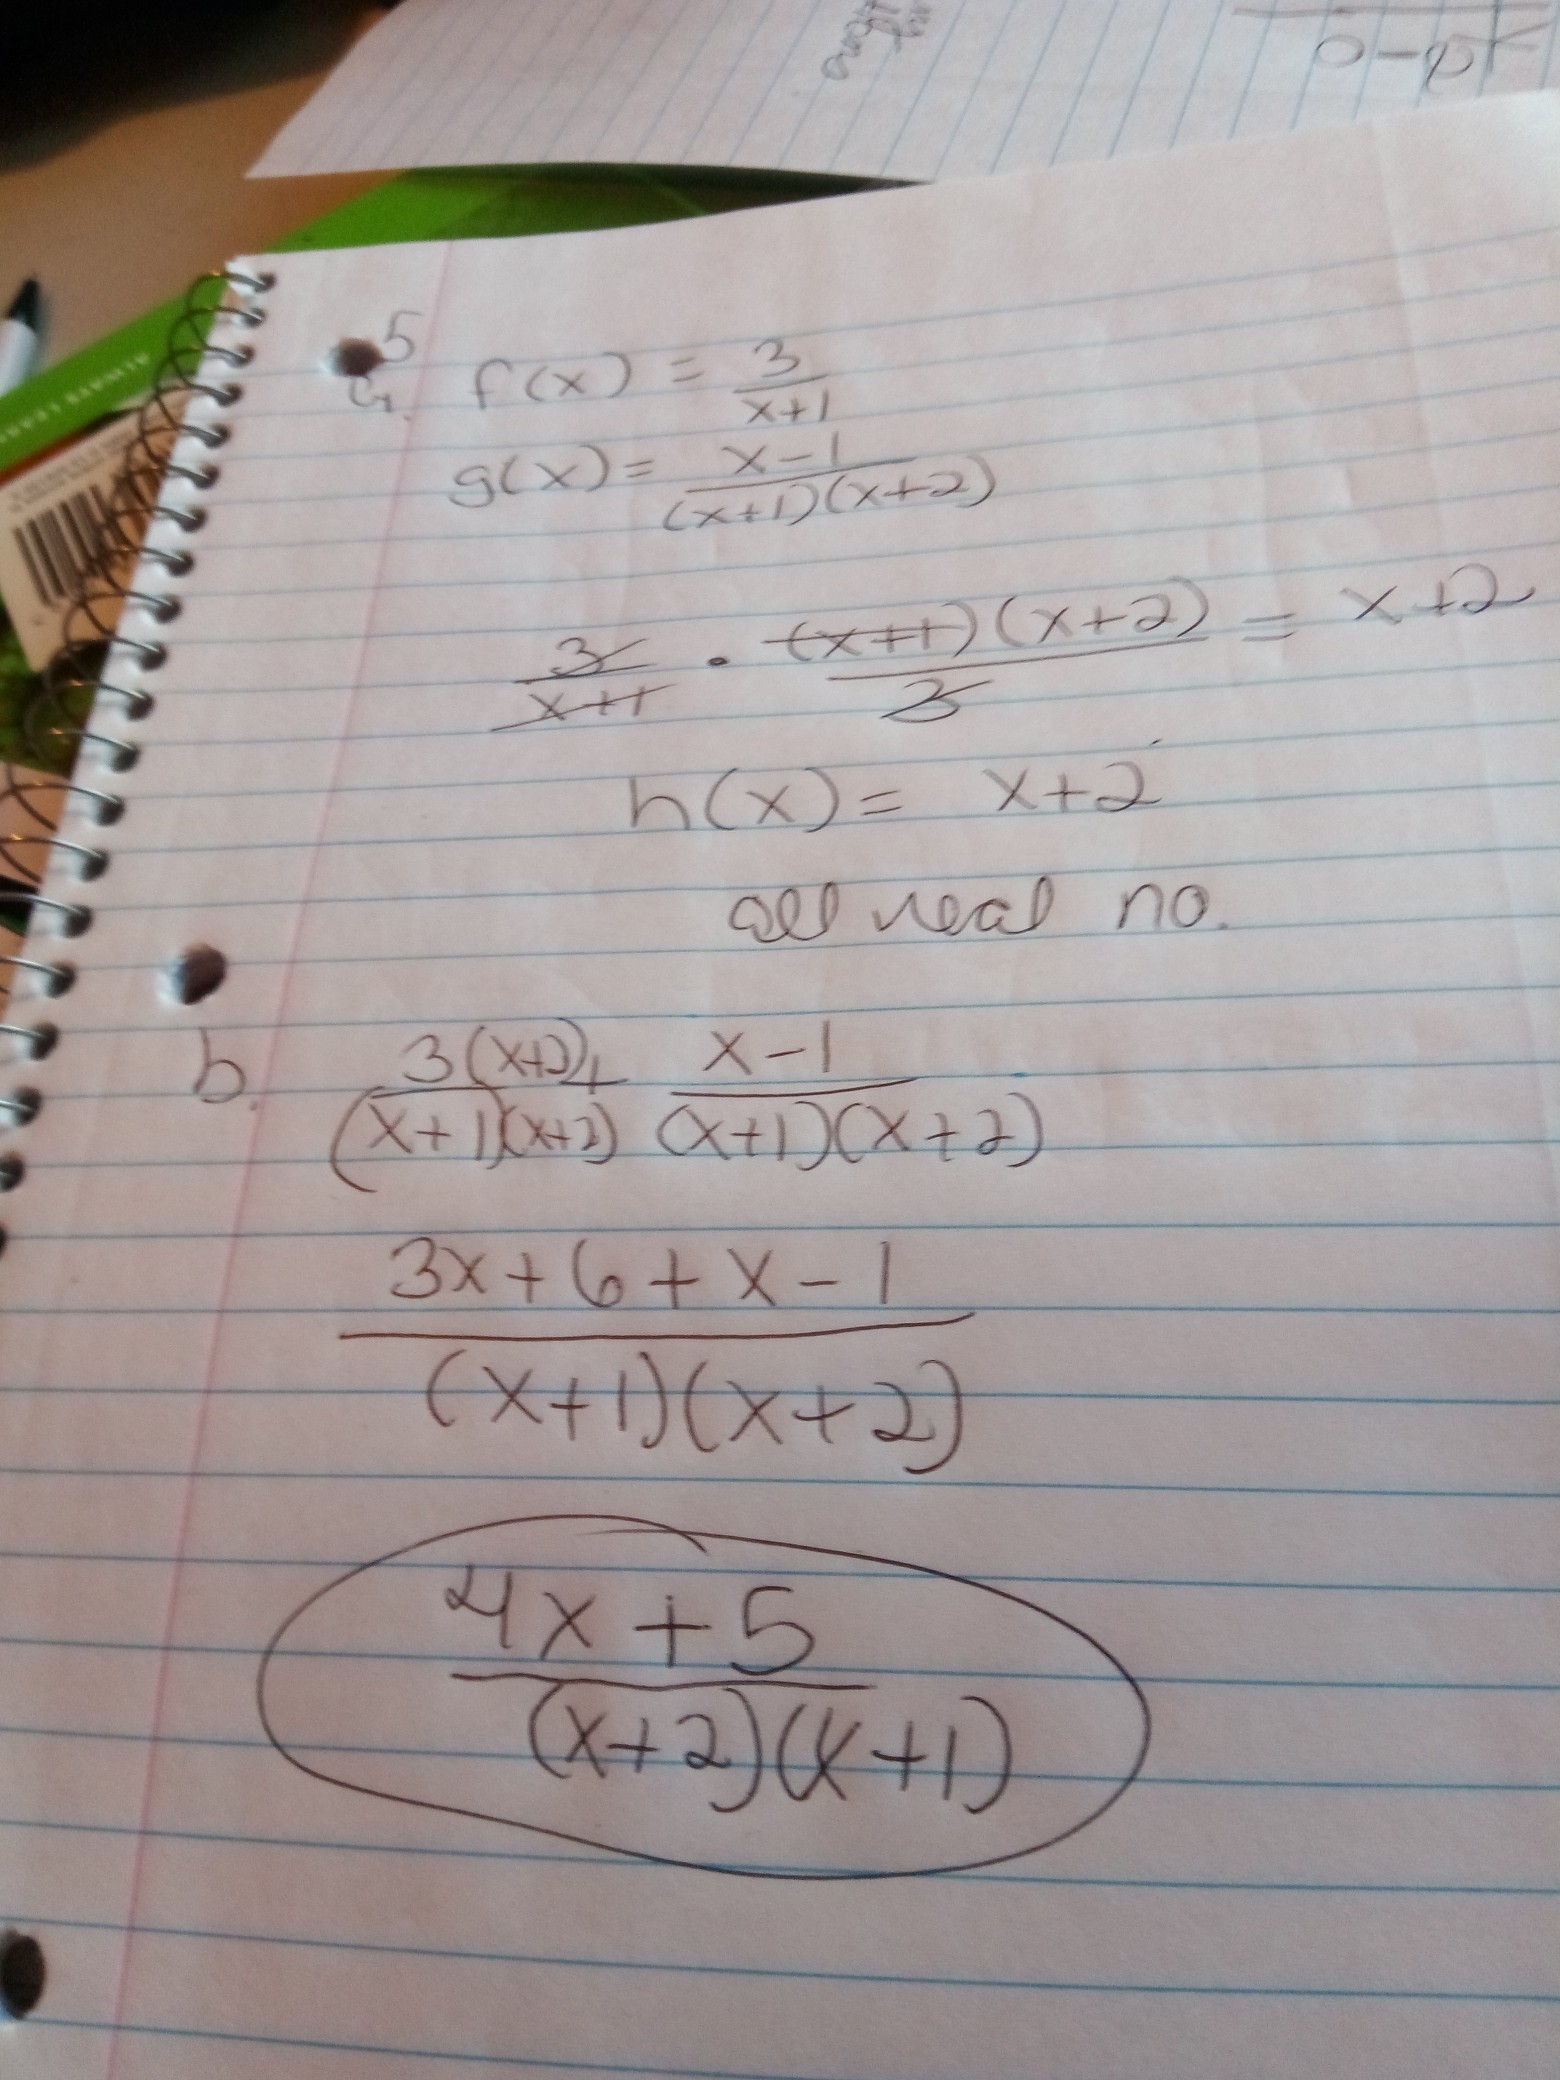 5
a. f(x) = 3/(x+1)
g(x) = (x-1)/((x+1)(x+2))
3/(x+1) · ((x+1)(x+2))/3 = x+2
h(x) = x+2
all real no.
b. 3(x+2)/((x+1)(x+2)) + (x-1)/((x+1)(x+2))
(3x+6+x-1)/((x+1)(x+2))
(4x+5)/((x+2)(x+1))